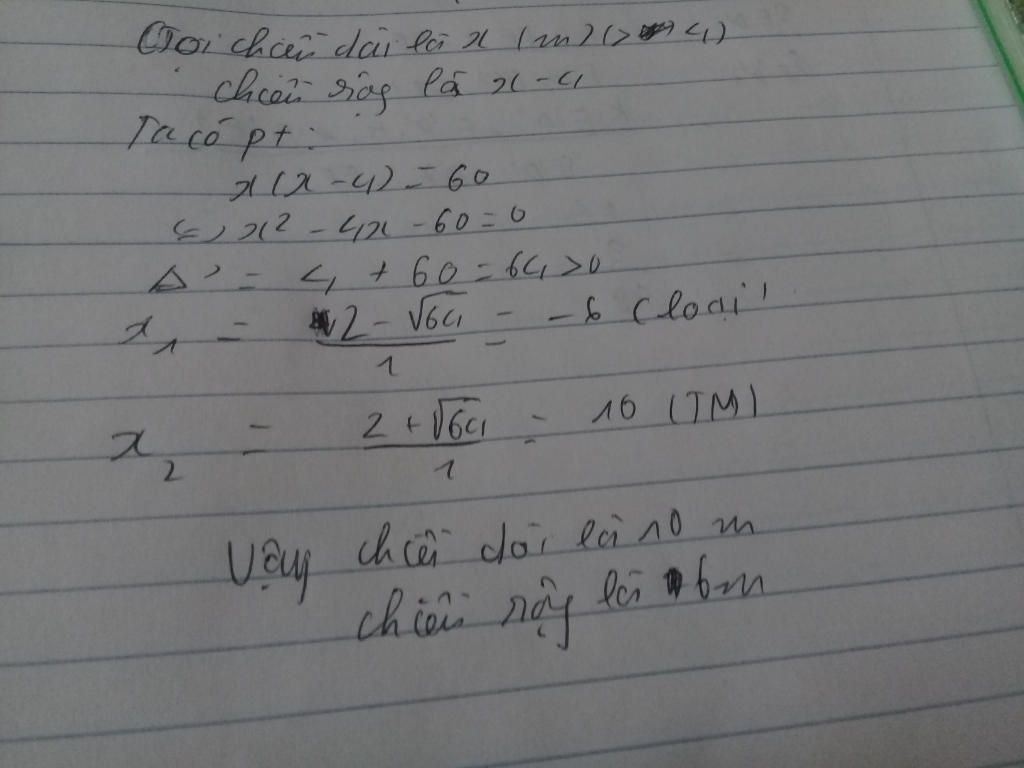 Gọi chiều dài là x (m) (> 4)
chiều rộng là x - 4
Ta có pt:
x(x - 4) = 60
<=> x² - 4x - 60 = 0
Δ' = 4 + 60 = 64 > 0
x₁ = (2 - √64)/1 = -6 (loại)
x₂ = (2 + √64)/1 = 10 (TM)
Vậy chiều dài là 10 m
chiều rộng là 6m